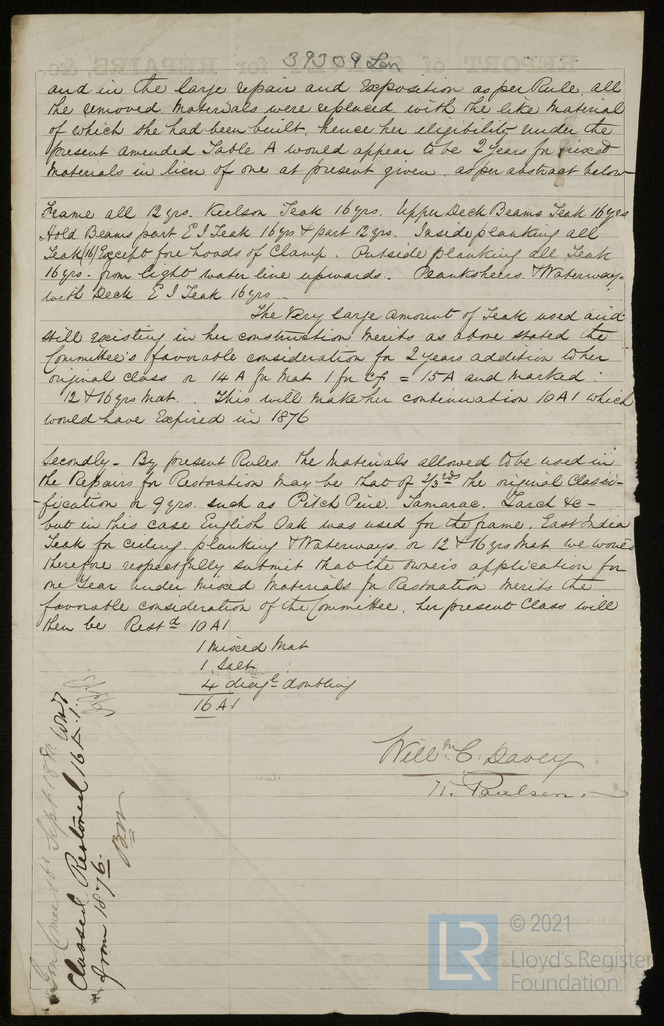 39309 Lon
and in the large repair and Exposition as per Rule, all
the removed materials were replaced with the like material
of which she had been built, hence her eligibility under the
present amended Table A would appear to be 2 Years for mixed
materials in lieu of one at present given, as per abstract below
Frame all 12 yrs. Keelson Teak 16 yrs. Upper Deck Beams Teak 16 yrs
Hold Beams part E I Teak 16 yrs & part 12 yrs. Inside planking all
Teak (16) Except fore hoods of Clamp. Outside planking all Teak
16 yrs. from light water line upwards. Planksheers & Waterways
with Deck E I Teak 16 yrs
The Very large amount of Teak used and
still existing in her construction merits as above stated the
Committee's favorable consideration for 2 years addition to her
original class or 14 A for Mat 1 for Cf = 15 A and marked
12 & 16 yrs Mat. This will make her continuation 10 A1 which
would have Expired in 1876
Secondly - By present Rules the Materials allowed to be used in
the Repairs for Restoration may be that of 2/3rds the original Classi-
-fication or 9 yrs. such as Pitch Pine, Tamarac, Larch &c -
but in this case English Oak was used for the frame, East India
Teak for ceiling, planking & Waterways, or 12 & 16 yrs Mat. we would
therefore respectfully submit that the owners application for
one Year under mixed Materials for Restoration merits the
favorable consideration of the Committee, her present Class will
then be Restd 10 A1
1 mixed Mat
1 Salt
4 diagl doubling
16 A1
Willm C. Davey
Paulsen
Sept
Classed Restored 16 A.1.
from 1876.
© 2021
LR
Lloyd's Register
Foundation